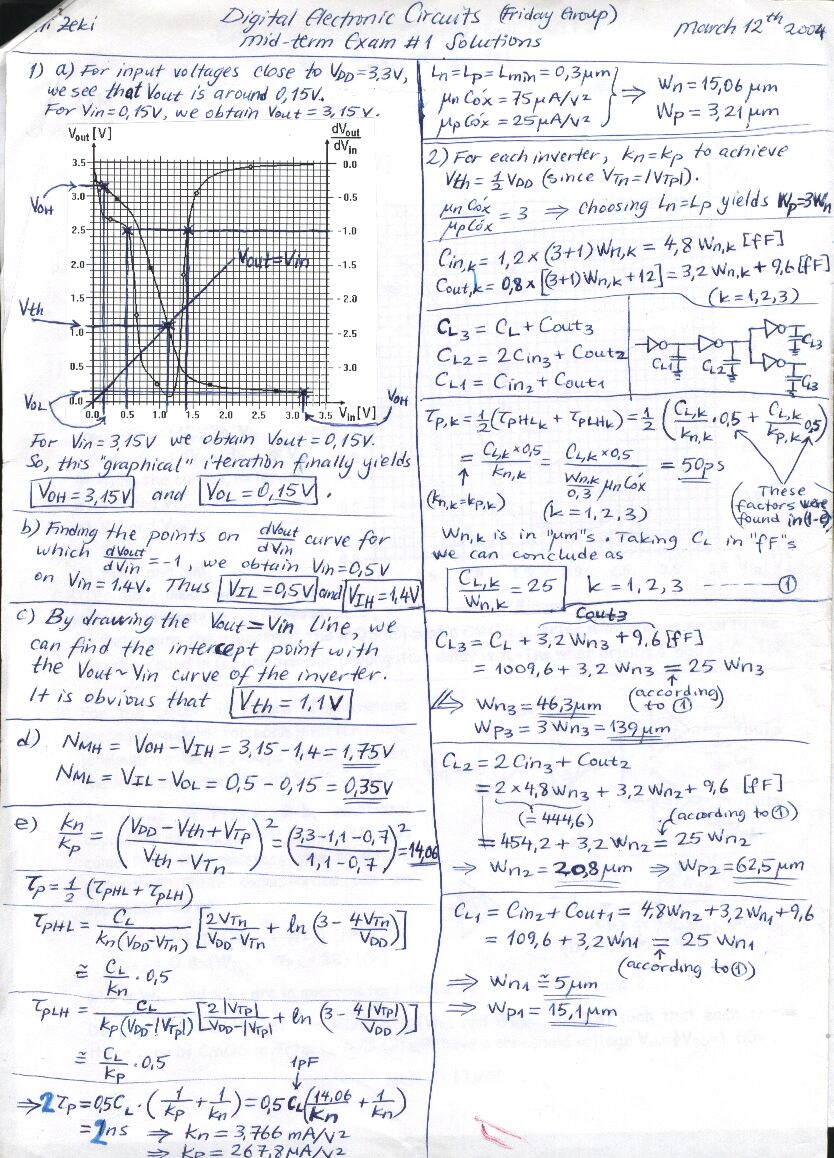 Zeki
Digital Electronic Circuits (Friday Group)
mid-term Exam #1 Solutions
March 12th 2004
1) a) For input voltages close to VDD=3,3V,
we see that Vout is around 0,15V.
For Vin=0,15V, we obtain Vout=3,15V.
Vout [V]
dVout
dVin
3.5
3.0
2.5
2.0
1.5
1.0
0.5
0.0
0.0
-0.5
-1.0
-1.5
-2.0
-2.5
-3.0
0.0 0.5 1.0 1.5 2.0 2.5 3.0 3.5
Vin [V]
VOH
Vth
VOL
VOH
Vout=Vin
For Vin=3,15V we obtain Vout=0,15V.
So, this "graphical" iteration finally yields
VOH=3,15V and VOL=0,15V.
b) Finding the points on dVout/dVin curve for
which dVout/dVin=-1, we obtain Vin=0,5V
on Vin=1.4V. Thus VIL=0,5V and VIH=1,4V
c) By drawing the Vout=Vin line, we
can find the intercept point with
the Vout~Vin curve of the inverter.
It is obvious that Vth=1,1V
d) NMH = VOH-VIH = 3,15-1,4 = 1,75V
NML = VIL-VOL = 0,5-0,15 = 0,35V
e) kn/kp = ((VDD-Vth+VTp)/(Vth-VTn))² = ((3,3-1,1-0,7)/(1,1-0,7))² = 14,06
τp=½(τPHL+τPLH)
τPHL = CL/(kn(VDD-VTn)) [2VTn/(VDD-VTn) + ln(3-4VTn/VDD)]
≅ CL/kn · 0,5
τPLH = CL/(kp(VDD-|VTp|)) [2|VTp|/(VDD-|VTp|) + ln(3-4|VTp|/VDD)]
≅ CL/kp · 0,5
1pF
⇒ 2τp=0,5CL·(1/kp+1/kn)=0,5CL(14,06/kn+1/kn)
=2ns ⇒ kn=3,766 mA/V²
⇒ kp=267,8μA/V²
Ln=Lp=Lmin=0,3μm
μnCóx=75μA/V²
μpCóx=25μA/V²
⇒ Wn=15,06 μm
Wp=3,21 μm
2) For each inverter, kn=kp to achieve
Vth=½VDD (since VTn=|VTp|).
μnCóx/μpCóx = 3 ⇒ choosing Ln=Lp yields Wp=3Wn
Cin,k=1,2×(3+1)Wn,k=4,8Wn,k [fF]
Cout,k=0,8×[(3+1)Wn,k+12]=3,2Wn,k+9,6[fF]
(k=1,2,3)
CL3=CL+Cout3
CL2=2Cin3+Cout2
CL1=Cin2+Cout1
CL1
CL2
CL3
CL3
τp,k=½(τPHLk+τPLHk)=½(CL,k/kn,k·0,5+CL,k/kp,k 0,5)
= CL,k×0,5/kn,k = CL,k×0,5/(Wn,k/0,3 μnCóx) = 50ps
(kn,k=kp,k)
(k=1,2,3)
These
factors were
found in (1-e)
Wn,k is in "μm"s. Taking CL in "fF"s
we can conclude as
CL,k/Wn,k = 25 k=1,2,3 ------- ①
Cout3
CL3=CL+3,2Wn3+9,6[fF]
=1009,6+3,2Wn3=25 Wn3
(according to ①)
⇒ Wn3=46,3μm
Wp3=3Wn3=139μm
CL2=2Cin3+Cout2
=2×4,8Wn3+3,2Wn2+9,6 [fF]
(=444,6)
(according to ①)
=454,2+3,2Wn2=25Wn2
⇒ Wn2=20,8μm ⇒ Wp2=62,5μm
CL1=Cin2+Cout1=4,8Wn2+3,2Wn1+9,6
=109,6+3,2Wn1=25 Wn1
(according to ①)
⇒ Wn1≅5μm
⇒ Wp1=15,1μm